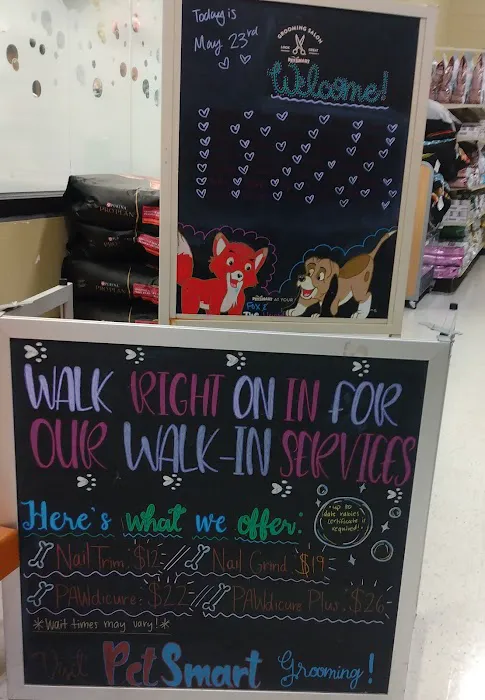 Today is
May 23rd
GROOMING SALON
LOOK GREAT
PETSMART
Welcome!
PURINA
PRO PLAN
PURINA
PRO PLAN
PETSMART
FOX &
THE
WALK RIGHT ON IN FOR
OUR WALK-IN SERVICES
Here's what we offer:
*up to
date rabies
certificate is
required!*
Nail Trim: $12 // Nail Grind: $19
PAWdicure: $22 // PAWdicure Plus: $26
*Wait times may vary!*
Visit PetSmart Grooming!